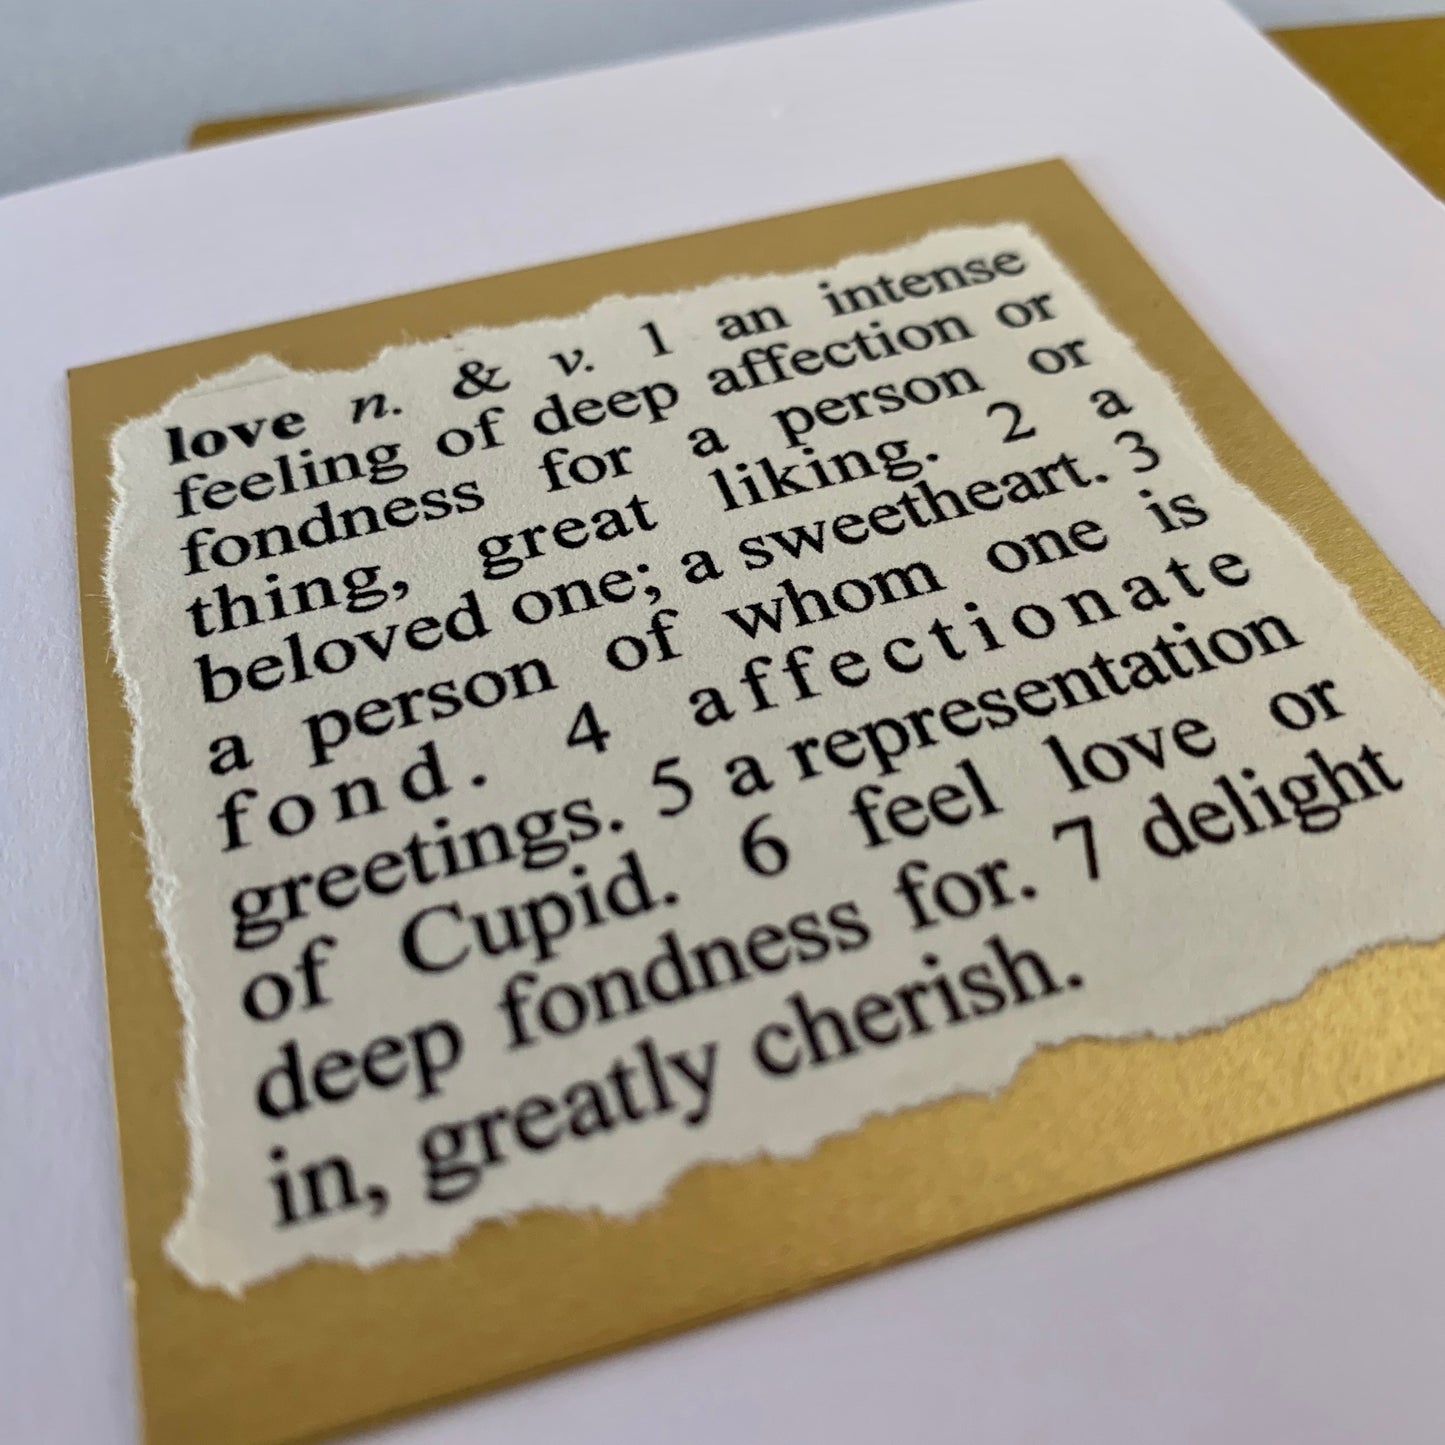 love n. & v. 1 an intense
feeling of deep affection or
fondness for a person or
thing, great liking. 2 a
beloved one; a sweetheart. 3
a person of whom one is
fond. 4 affectionate
greetings. 5 a representation
of Cupid. 6 feel love or
deep fondness for. 7 delight
in, greatly cherish.